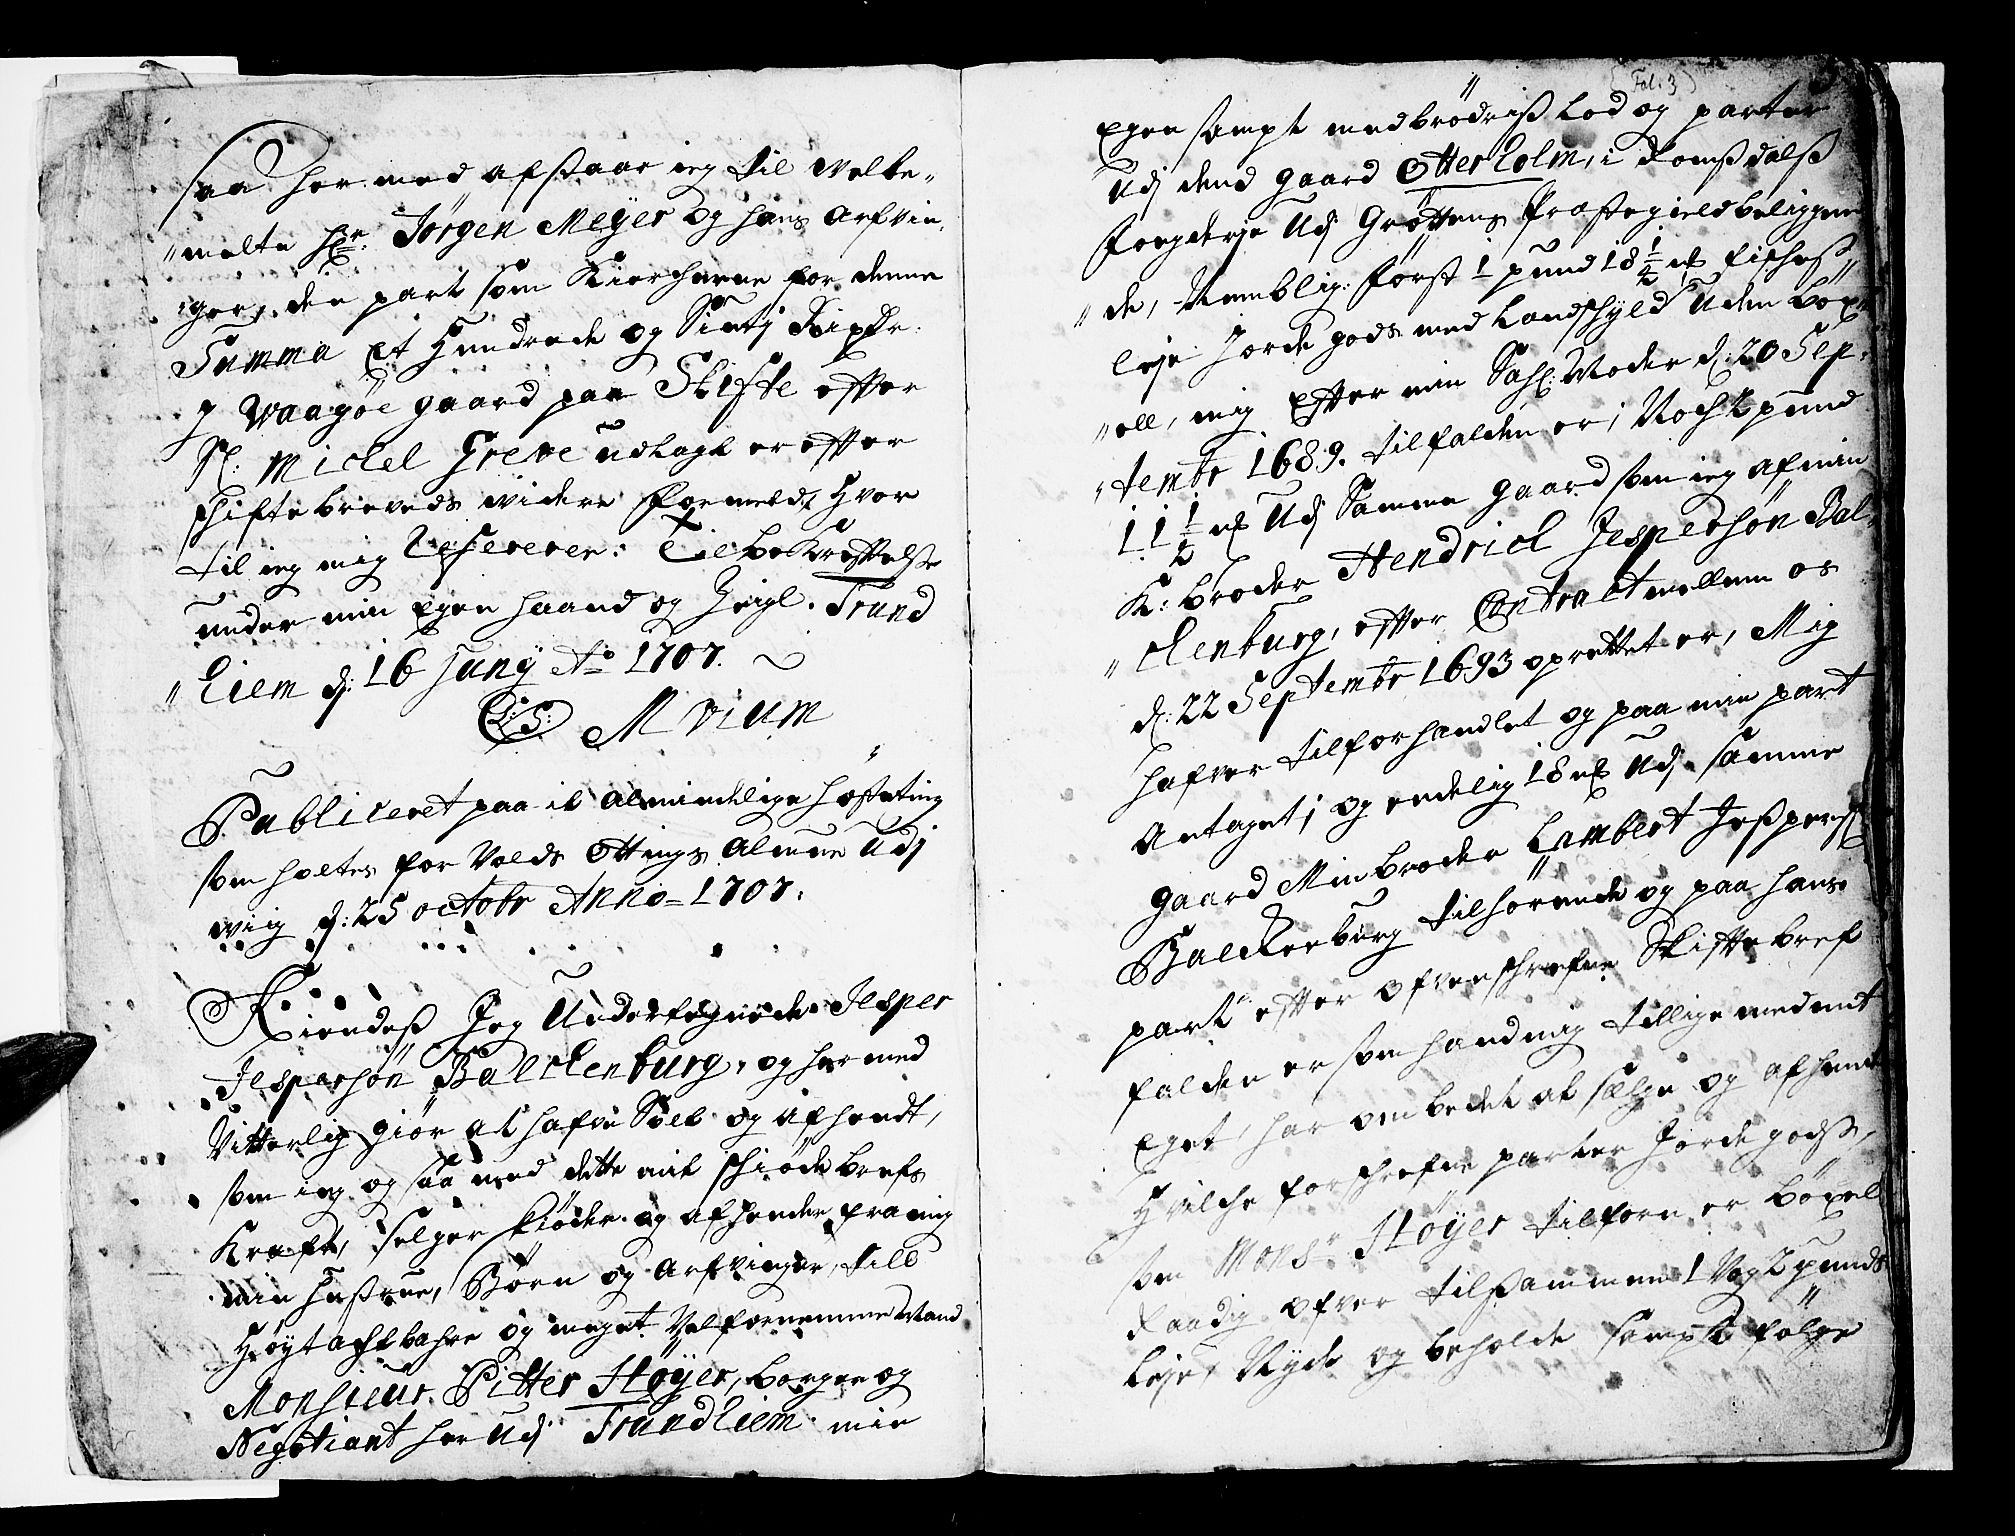 saa her med afstaar ieg til velbe„
„melte Hr: Jørgen Meÿer og hans arfvin„
„ger, den part som Kiercherne for denne
Summa Et Hundrede og Siuti Rixdr:
J Waagøe gaard paa Skifte efter
Sl: Michel Greve udlagt er efter
schiftebrevets videre formeld, Hvor
til ieg mig Refererer: Til bekreftelse
under min Egen haand og Zeigl. Trund
„hiem d: 16 Junÿ Ao 1707.
L:S: M Vium
Publiceret paa it almindelige høsteting
som holtes for Volds Ottings Almue Udj
wiig d: 25 octobr Anno 1707:
Kiendes Jeg Underskrefne Jesper
Jespersøn Balchenburg, og hermed
Vitterlig giør at hafve Solt og afhendt,
som ieg og saa med dette mit schiøde brefs
Kraft, selger schiøder og afhender fra mig
min Hustrue, Børn og arfvinger, till
Høÿtachtbahre og meget Velfornemme Mand
Monsieur Pitter Høÿer, borger og
Negotiant her Udj Trundhiem min
Fol. 3
Egen sampt medbrødris Lod og parter
Udj dend gaard Otterholm, i Romsdals
Fogderje Udj Grøttens Præstegield beliggen„
„de, Nemblig: Først 1 pund 18 1/2 mk fischis
leje Jordegods med Landschÿld Uden Böx„
„ell, mig Efter min Sahl: Moder d: 20 Sep„
„tembr 1689. tilfalden er; Noch 2 pund
11 1/2 mk Udj Samme gaard som ieg af min
K: broder Hendrich Jespersøn Bal„
„chenburg, efter Contract mellem os
d: 22 Septembr 1693 oprettet er, Mig
hafver tilforhandlet og paa min part
Antaget; og endelig 18 mk Udj samme
gaard Min broder Lambert Jespers:
Balchenburg tilhörende og paa hans
part efter ofvenschrefne Skiftebref
falden er som hand mig tillige med mit
Eget, har ombedet at sælge og afhende
Hvilche forschrefne parter Jordegods,
som Monsr Høÿer tilforn er böxel
Raadig ofver tilsammen 1 Vog 2 punds
leje, Nÿde og beholde sampt følge